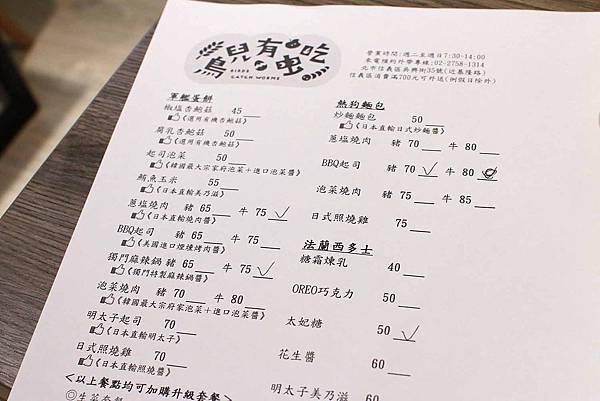 鳥兒有虫吃
BIRDS
CATCH WORMS
營業時間:週二至週日7:30-14:00
來電預約外帶專線:02-2758-1314
北市信義區吳興街35號(近基隆路)
信義區消費滿700元可外送(例假日除外)
軍艦蛋餅
椒鹽杏鮑菇 45
《選用有機杏鮑菇》
腐乳杏鮑菇 50
《選用有機杏鮑菇》
起司泡菜 50
《韓國最大宗家府泡菜+進口泡菜醬》
鮪魚玉米 55
《日本直輸美乃滋》
蔥塩燒肉 豬 65 牛 75
《日本直輸燒肉醬》
BBQ起司 豬 65 牛 75
《美國進口煙燻烤肉醬》
獨門麻辣鍋 豬 65 牛 75
《獨門特製麻辣鍋醬》
泡菜燒肉 豬 70 牛 80
《韓國最大宗府家泡菜+進口泡菜醬》
明太子起司 70
《日本直輸明太子》
日式照燒雞 70
《日本直輸照燒醬》
<以上餐點均可加購升級套餐>
◎生菜套餐
熱狗麵包
炒麵麵包 50
《日本直輸日式炒麵醬》
蔥塩燒肉 豬 70 牛 80
BBQ起司 豬 70 牛 80
泡菜燒肉 豬 75 牛 85
日式照燒雞 75
法蘭西多士
糖霜煉乳 40
OREO巧克力 50
太妃糖 50
花生醬 60
明太子美乃滋 60